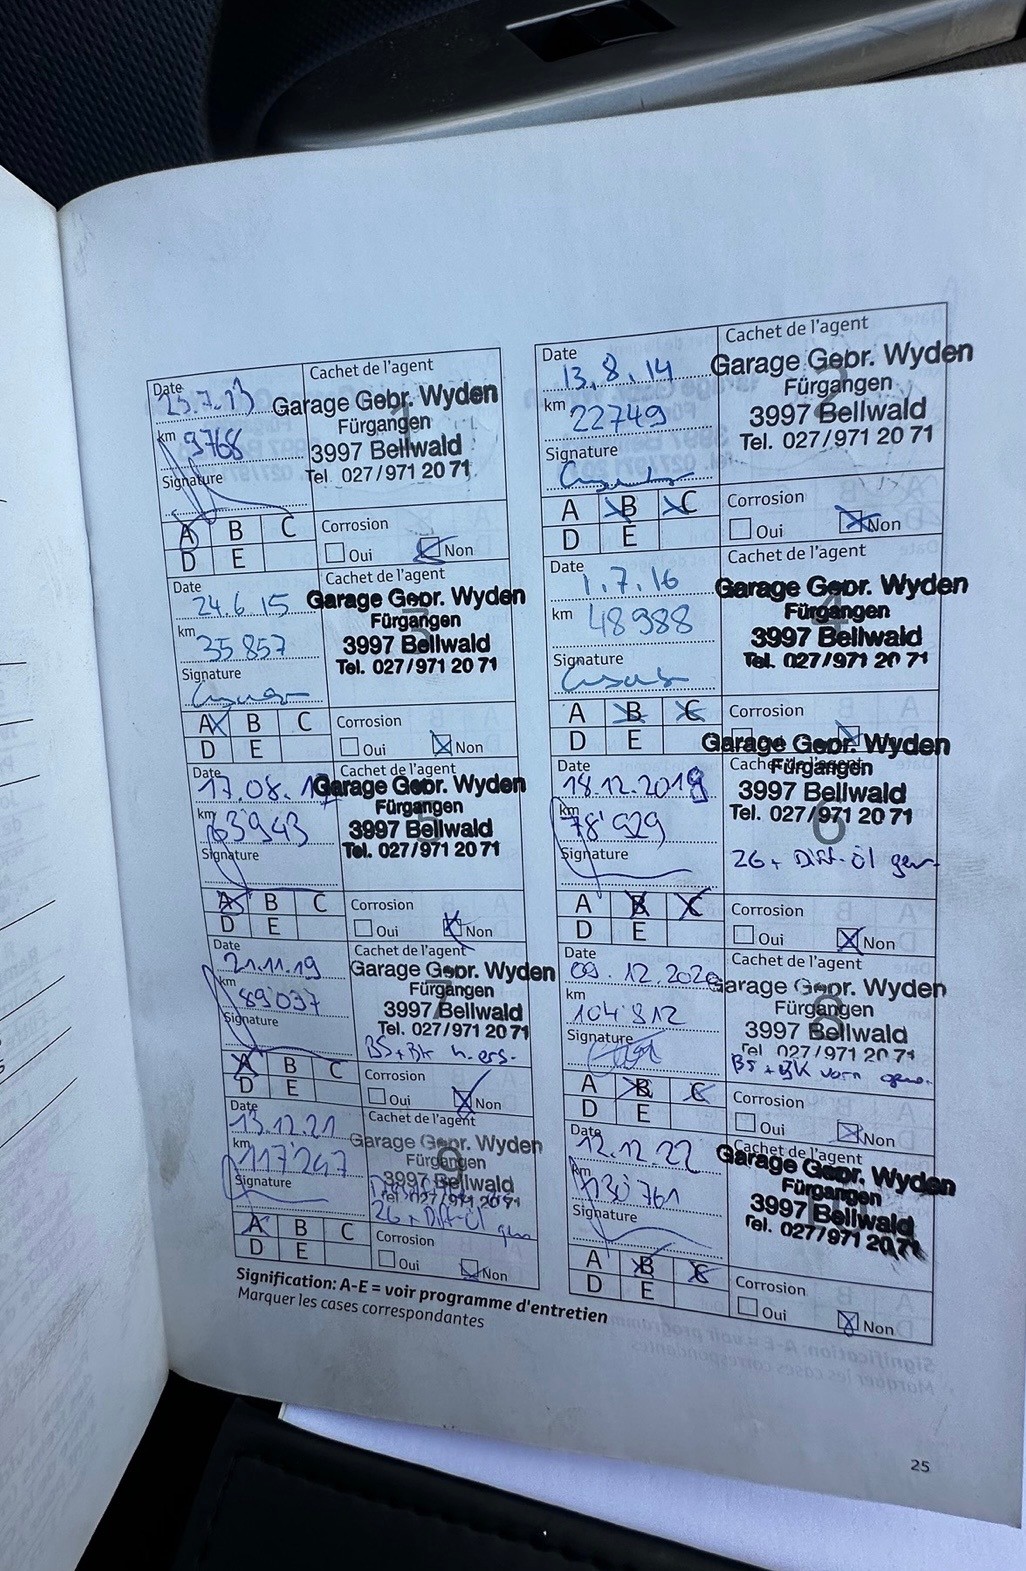 Date
25.7.13
km
9768
Signature
Cachet de l'agent
1
Garage Gebr. Wyden
Fürgangen
3997 Bellwald
Tel. 027/971 20 71
A B C
D E
Corrosion
Oui Non
Date
13.8.14
km
22749
Signature
Cachet de l'agent
2
Garage Gebr. Wyden
Fürgangen
3997 Bellwald
Tel. 027/971 20 71
A B C
D E
Corrosion
Oui Non
Date
24.6.15
km
35857
Signature
Cachet de l'agent
3
Garage Gebr. Wyden
Fürgangen
3997 Bellwald
Tel. 027/971 20 71
A B C
D E
Corrosion
Oui Non
Date
1.7.16
km
48988
Signature
Cachet de l'agent
4
Garage Gebr. Wyden
Fürgangen
3997 Bellwald
Tel. 027/971 20 71
A B C
D E
Corrosion
Date
17.08.17
km
63'943
Signature
Cachet de l'agent
5
Garage Gebr. Wyden
Fürgangen
3997 Bellwald
Tel. 027/971 20 71
A B C
D E
Corrosion
Oui Non
Date
18.12.2018
km
78'929
Signature
Cachet de l'agent
6
Garage Gebr. Wyden
Fürgangen
3997 Bellwald
Tel. 027/971 20 71
ZG + Diff-Öl gew.
A B C
D E
Corrosion
Oui Non
Date
21.11.19
km
89'037
Signature
Cachet de l'agent
7
Garage Gebr. Wyden
Fürgangen
3997 Bellwald
Tel. 027/971 20 71
BS + BK h. ers.
A B C
D E
Corrosion
Oui Non
Date
09.12.2020
km
104'812
Signature
Cachet de l'agent
8
Garage Gebr. Wyden
Fürgangen
3997 Bellwald
Tel. 027/971 20 71
BS + BK vorn gew.
A B C
D E
Corrosion
Oui Non
Date
13.12.21
km
117'247
Signature
Cachet de l'agent
9
Garage Gebr. Wyden
Fürgangen
3997 Bellwald
Tel. 027/971 20 71
ZG + Diff-Öl gew
A B C
D E
Corrosion
Oui Non
Date
12.12.22
km
130'761
Signature
Cachet de l'agent
Garage Gebr. Wyden
Fürgangen
3997 Bellwald
Tel. 027/971 20 71
A B C
D E
Corrosion
Oui Non
Signification: A-E = voir programme d'entretien
Marquer les cases correspondantes
25